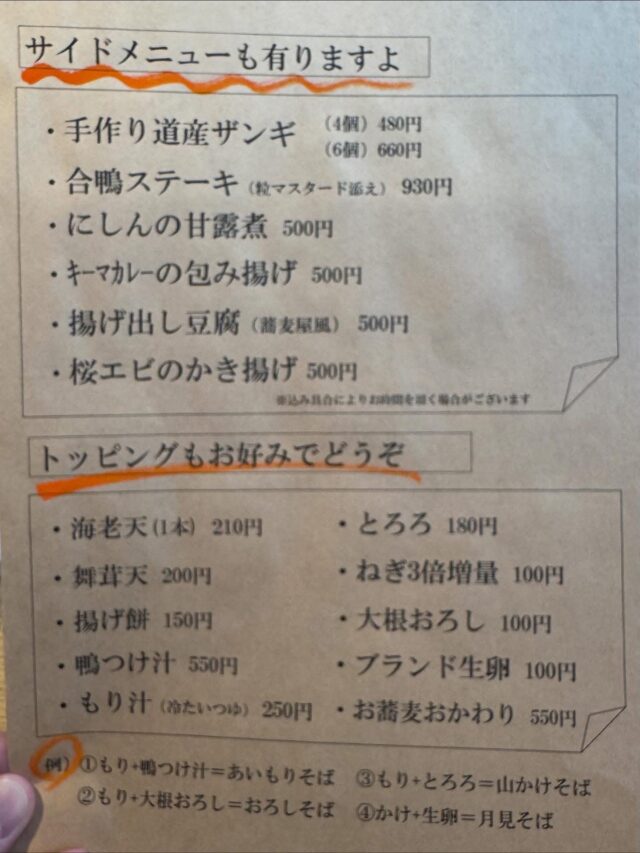 サイドメニューも有りますよ
・手作り道産ザンギ （4個）480円
（6個）660円
・合鴨ステーキ（粒マスタード添え） 930円
・にしんの甘露煮 500円
・ｷｰﾏｶﾚｰの包み揚げ 500円
・揚げ出し豆腐（蕎麦屋風） 500円
・桜エビのかき揚げ 500円
※込み具合によりお時間を頂く場合がございます
トッピングもお好みでどうぞ
・海老天(1本) 210円
・舞茸天 200円
・揚げ餅 150円
・鴨つけ汁 550円
・もり汁（冷たいつゆ） 250円
・とろろ 180円
・ねぎ3倍増量 100円
・大根おろし 100円
・ブランド生卵 100円
・お蕎麦おかわり 550円
例）①もり+鴨つけ汁＝あいもりそば
②もり+大根おろし＝おろしそば
③もり+とろろ＝山かけそば
④かけ+生卵＝月見そば